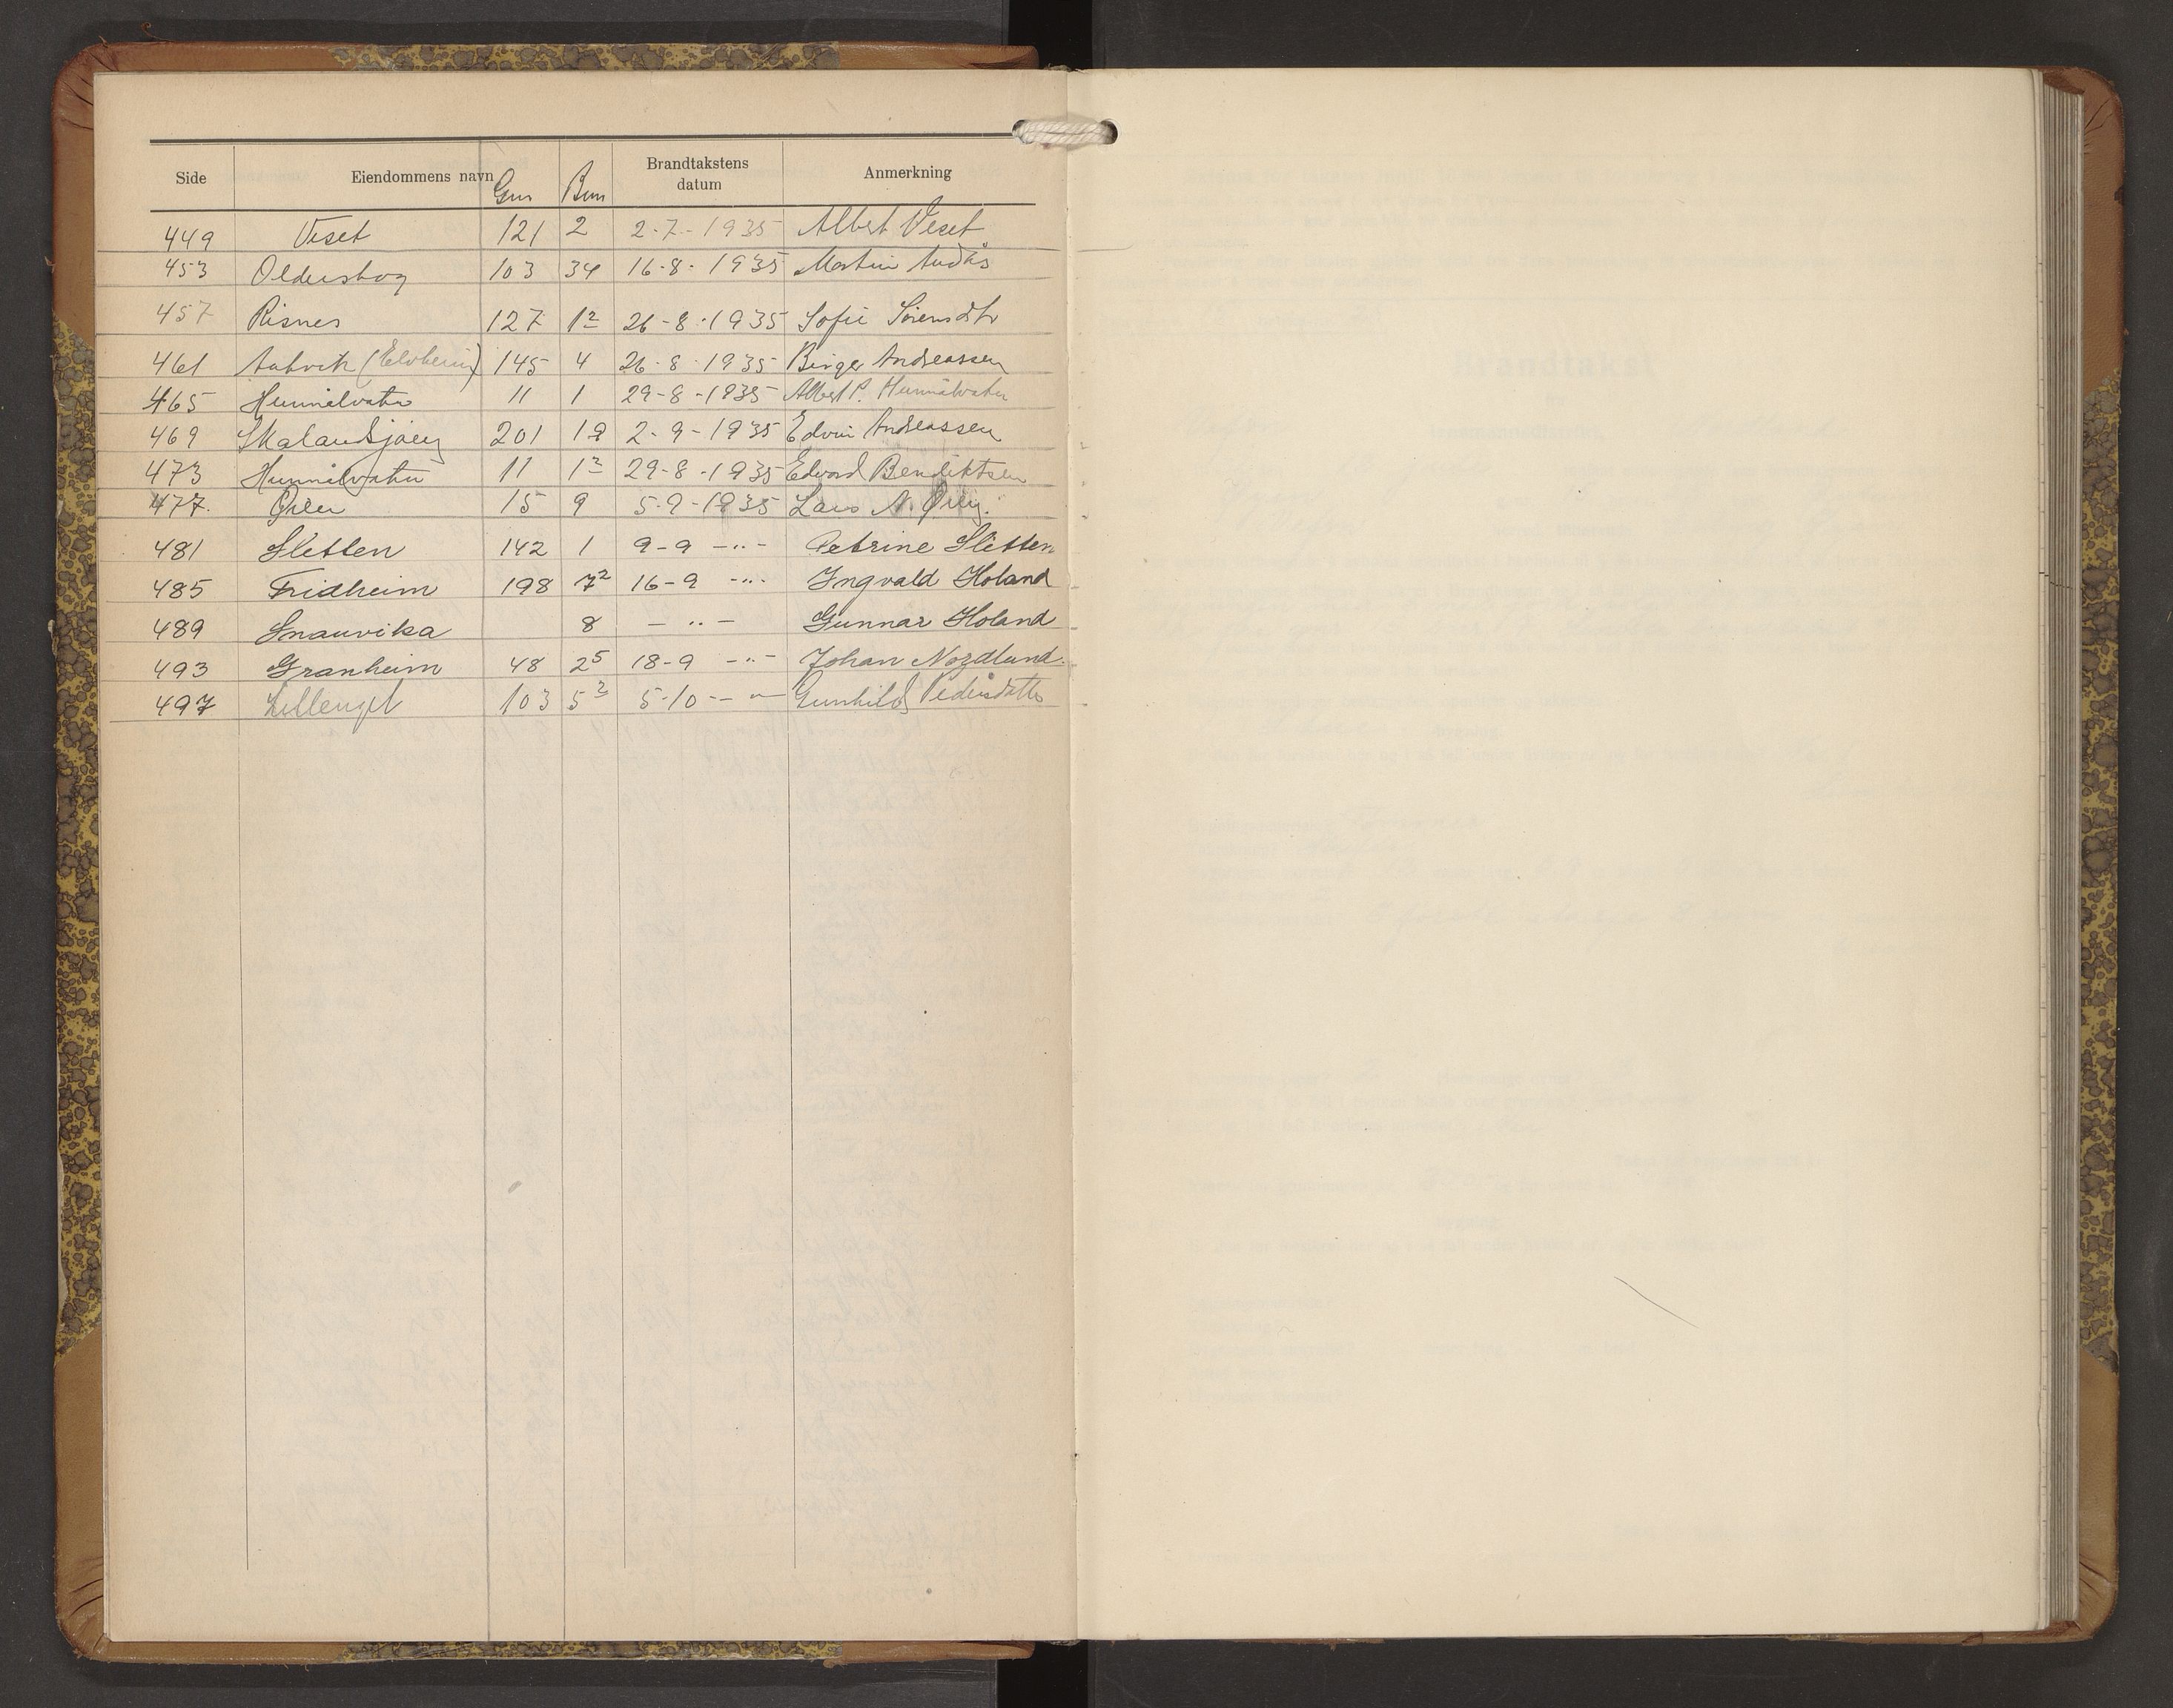 Side Eiendommens navn Gnr Bnr Brandtakstens datum Anmerkning
449 Viset 121 2 2-7-1935 Albert Viset
453 Oldershog 103 34 16-8-1935 Martin Audås
457 Risnes 127 1² 26-8-1935 Sofie Sørensdtr
461 (Elvheim) 145 4 26-8-1935 Birger Andreassen
465 Hunnålvatn 11 1 29-8-1935 Albert P. Hunnålvatn
469 201 19 2-9-1935 Edvin Andreassen
473 Hunnålvatn 11 1² 29-8-1935 Edvard Bendiktsen
477. 15 9 5-9-1935 Lars N.
481 Sletten 142 1 9-9 -"- Petrine Sletten
485 Fridheim 198 7² 16-9 -"- Ingvald Holand
489 Snauvika 8 -"- Gunnar Holand
493 Granheim 48 2⁵ 18-9 -"- Johan Nordlund.
497 Litlenget 103 5² 5-10 -"- Gunhild Pedersdatter
Brandtakst